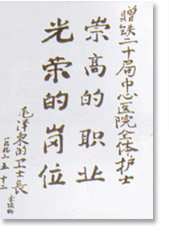 赠铁二十局中心医院全体护士
崇高的职业
光荣的岗位
毛泽东的卫士長
五.十二